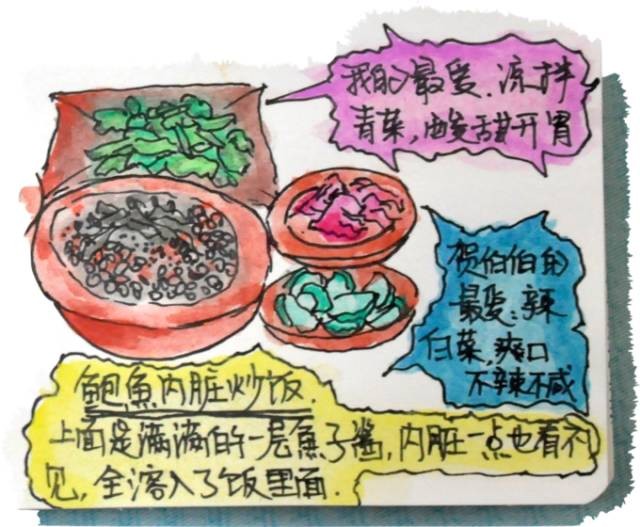 我的最爱.凉拌
青菜,酸甜开胃
贺伯伯的
最爱:辣
白菜,爽口
不辣不咸
鲍魚内脏炒饭.
上面是满满的一层魚子酱,内脏一点也看不
见,全溶入了饭里面.